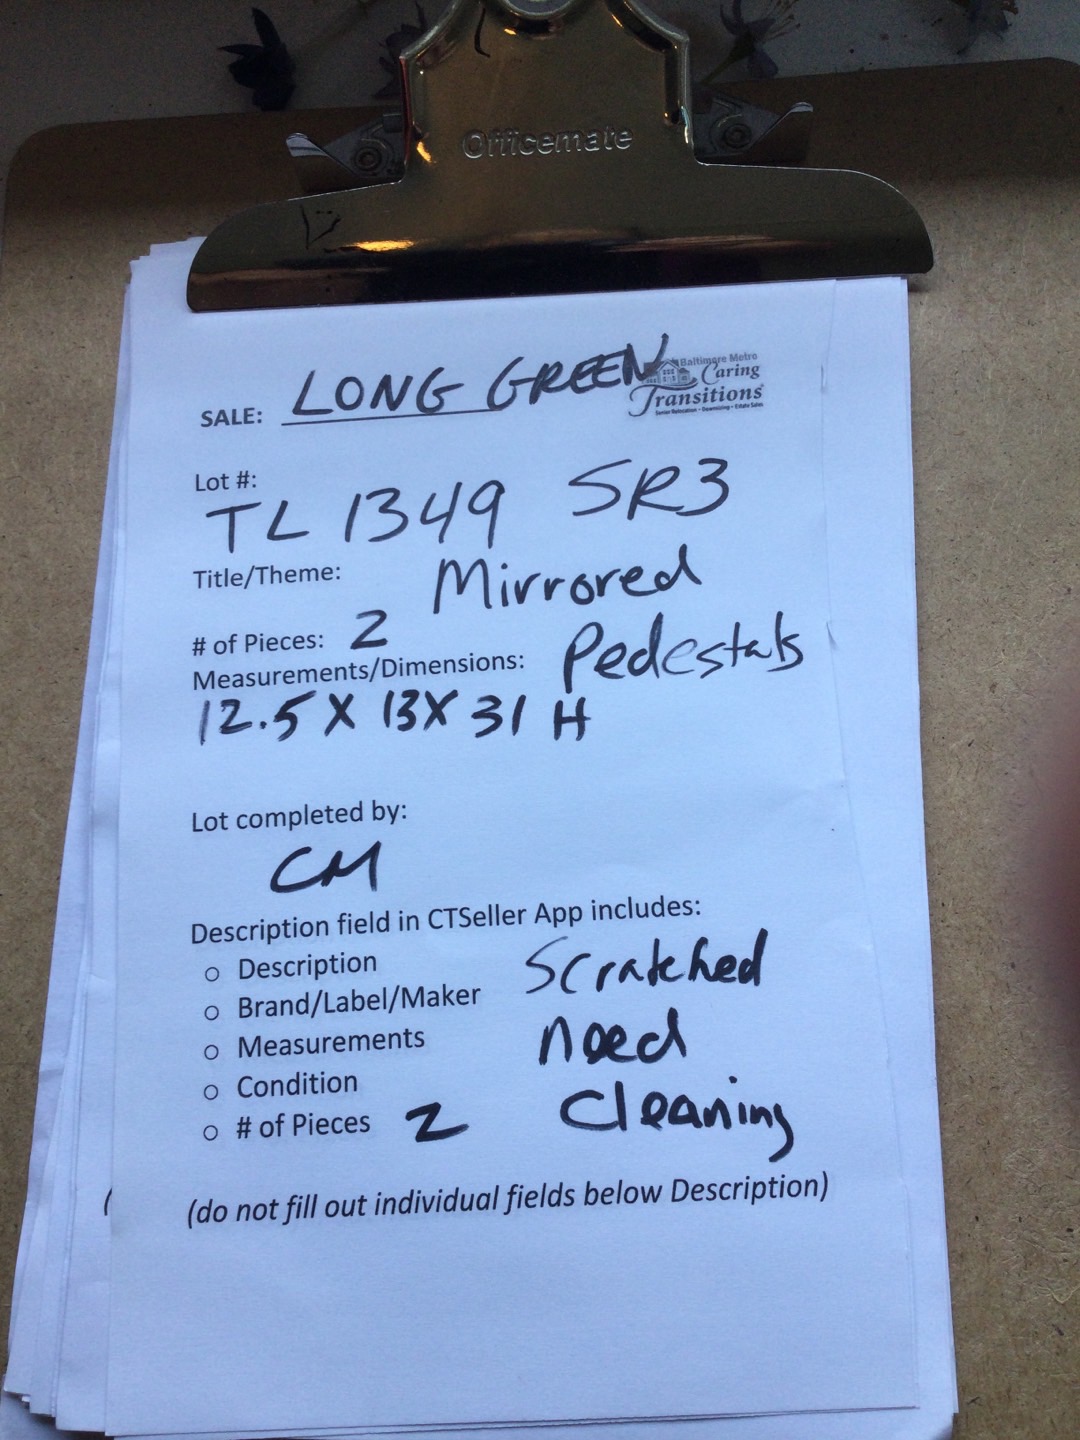 Officemate
SALE: LONG GREEN
Baltimore Metro
Caring
Transitions
Senior Relocation • Downsizing • Estate Sales
Lot #:
TL 1349 SR3
Title/Theme: Mirrored
Pedestals
# of Pieces: 2
Measurements/Dimensions:
12.5 X 13 X 31 H
Lot completed by:
CM
Description field in CTSeller App includes:
○ Description
○ Brand/Label/Maker
○ Measurements
○ Condition
○ # of Pieces 2
Scratched
need
Cleaning
(do not fill out individual fields below Description)